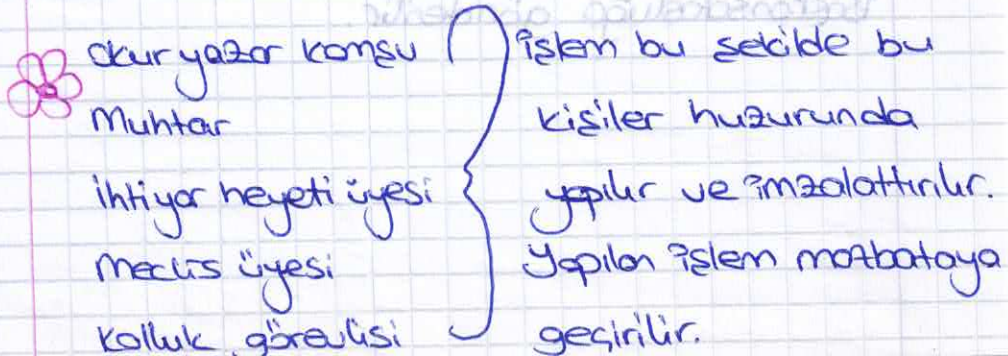 okur yazar komşu
Muhtar
ihtiyar heyeti üyesi
Meclis üyesi
Kolluk görevlisi
İşlem bu şekilde bu
kişiler huzurunda
yapılır ve imzalattırılır.
Yapılan işlem mazbataya
geçirilir.